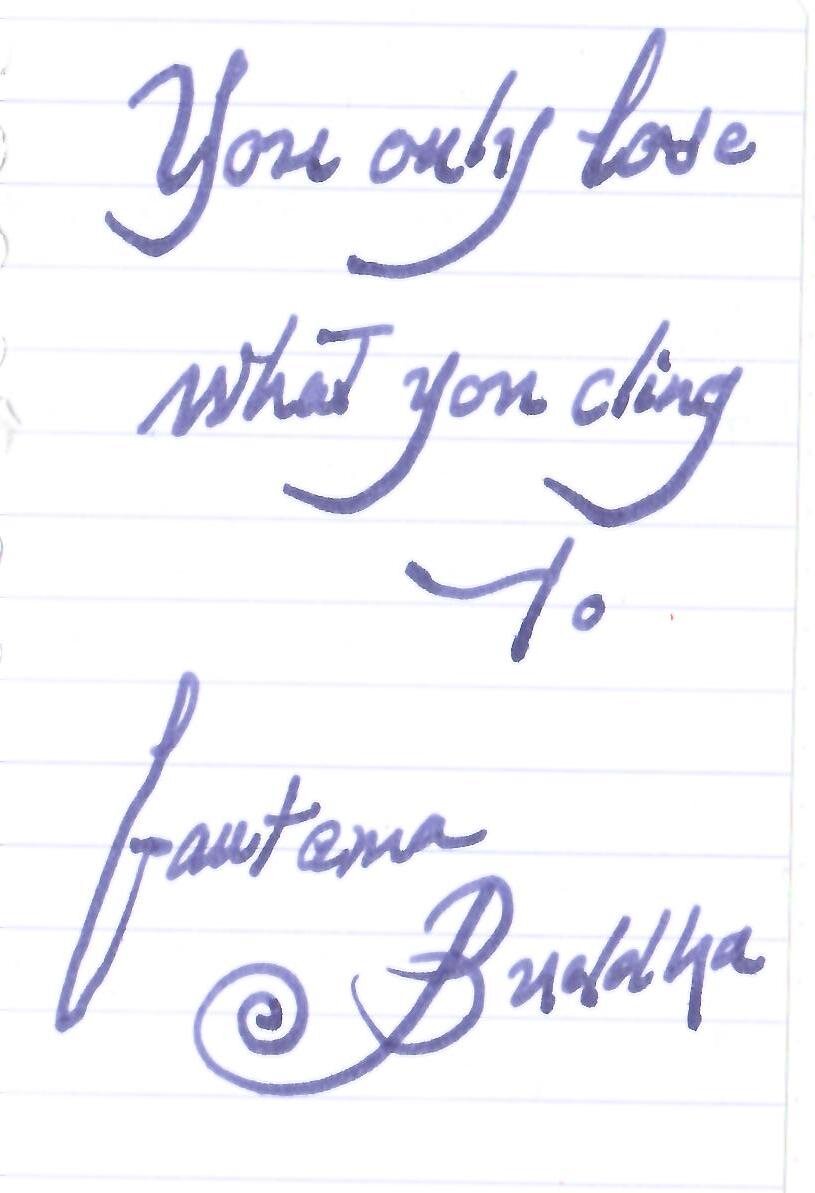 You only lose
what you cling
To
Gautama
Buddha